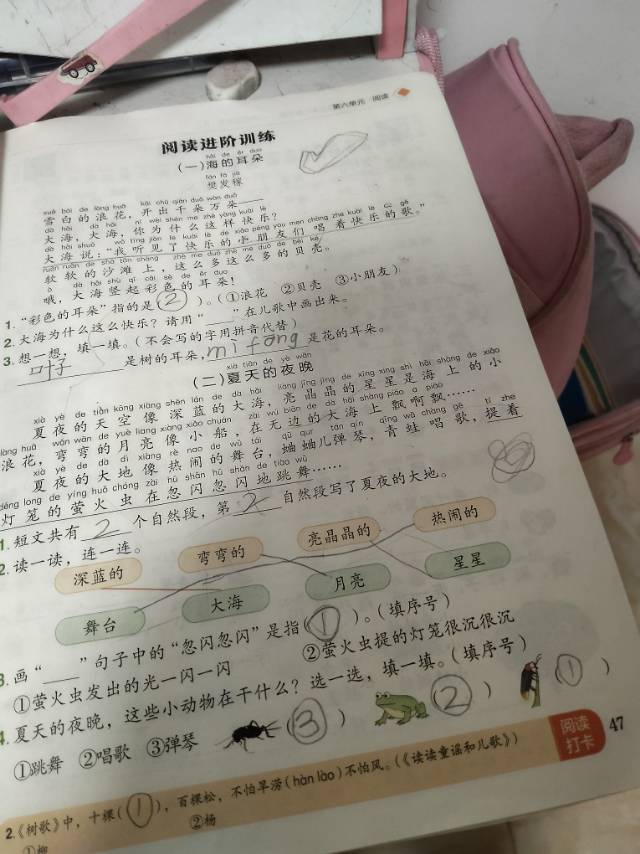 第六单元 阅读
阅读进阶训练
hǎi de ěr duo
(一)海的耳朵
fán fā jià
樊发稼
xuě bái de làng huā kāi chū qiān duǒ wàn duǒ
雪白的浪花,开出千朵万朵
dà hǎi dà hǎi nǐ wèi shén me zhè yàng kuài lè
大海,大海,你为什么这样快乐?
大海说:“我听见了快乐的小朋友们唱着快乐的歌。”
软软的沙滩上,这么多这么多的贝壳。
哦,大海竖起彩色的耳朵!
1.“彩色的耳朵”指的是(②)。(①浪花 ②贝壳 ③小朋友)
2.大海为什么这么快乐?请用“___”在儿歌中画出来。
3.想一想,填一填。(不会写的字用拼音代替)
叶子是树的耳朵,mì fōng是花的耳朵。
xià tiān de yè wǎn
(二)夏天的夜晚
xià yè de tiān kōng xiàng shēn lán de dà hǎi liàng jīng jīng de xīng xing shì hǎi shàng de xiǎo
夏夜的天空像深蓝的大海,亮晶晶的星星是海上的小
làng huā wān wān de yuè liang xiàng xiǎo chuán zài wú biān de dà hǎi shàng piāo a piāo
浪花,弯弯的月亮像小船,在无边的大海上飘啊飘……
xià yè de dà dì xiàng rè nao de wǔ tái qū qur tán qín qīng wā chàng gē tí zhe
夏夜的大地像热闹的舞台,蛐蛐儿弹琴,青蛙唱歌,提着
dēng long de yíng huǒ chóng zài hū shǎn hū shǎn de tiào wǔ
灯笼的萤火虫在忽闪忽闪地跳舞……
1.短文共有2个自然段,第2自然段写了夏夜的大地。
2.读一读,连一连。
深蓝的 弯弯的 亮晶晶的 热闹的
舞台 大海 月亮 星星
3.画“___”句子中的“忽闪忽闪”是指(①)。(填序号)
①萤火虫发出的光一闪一闪 ②萤火虫提的灯笼很沉很沉
4.夏天的夜晚,这些小动物在干什么?选一选,填一填。(填序号)
①跳舞 ②唱歌 ③弹琴 (③) (②) (①)
阅读打卡
47
2.《树歌》中,十棵(①),百棵松,不怕旱涝(hàn lào)不怕风。(《读读童谣和儿歌》)
①柳 ②杨